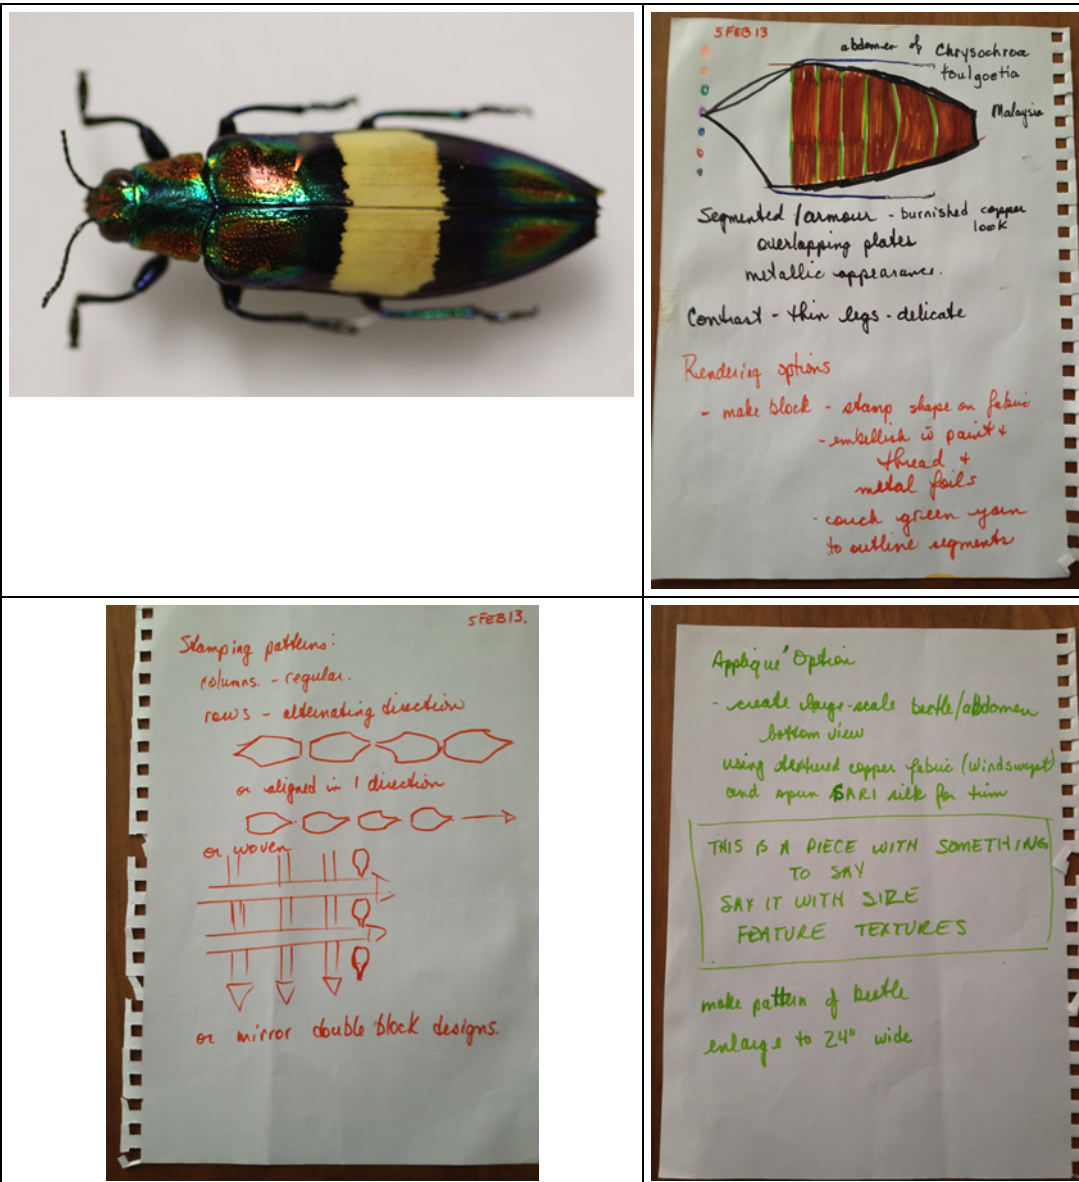 5 FEB 13
abdomen of Chrysochroa
toulgoetia
Malaysia
Segmented / armour - burnished copper
look
overlapping plates
metallic appearance.
Contrast - thin legs - delicate
Rendering options
- make block - stamp shape on fabric
- embellish w paint +
thread +
metal foils
- couch green yarn
to outline segments
5 FEB 13.
Stamping patterns:
columns. - regular.
rows - alternating direction
or aligned in 1 direction
or woven
or mirror double block designs.
Applique' Option
- create large-scale beetle/abdomen
bottom view
using textured copper fabric (windswept)
and spun SARI silk for trim
THIS IS A PIECE WITH SOMETHING
TO SAY
SAY IT WITH SIZE
FEATURE TEXTURES
make pattern of beetle
enlarge to 24" wide